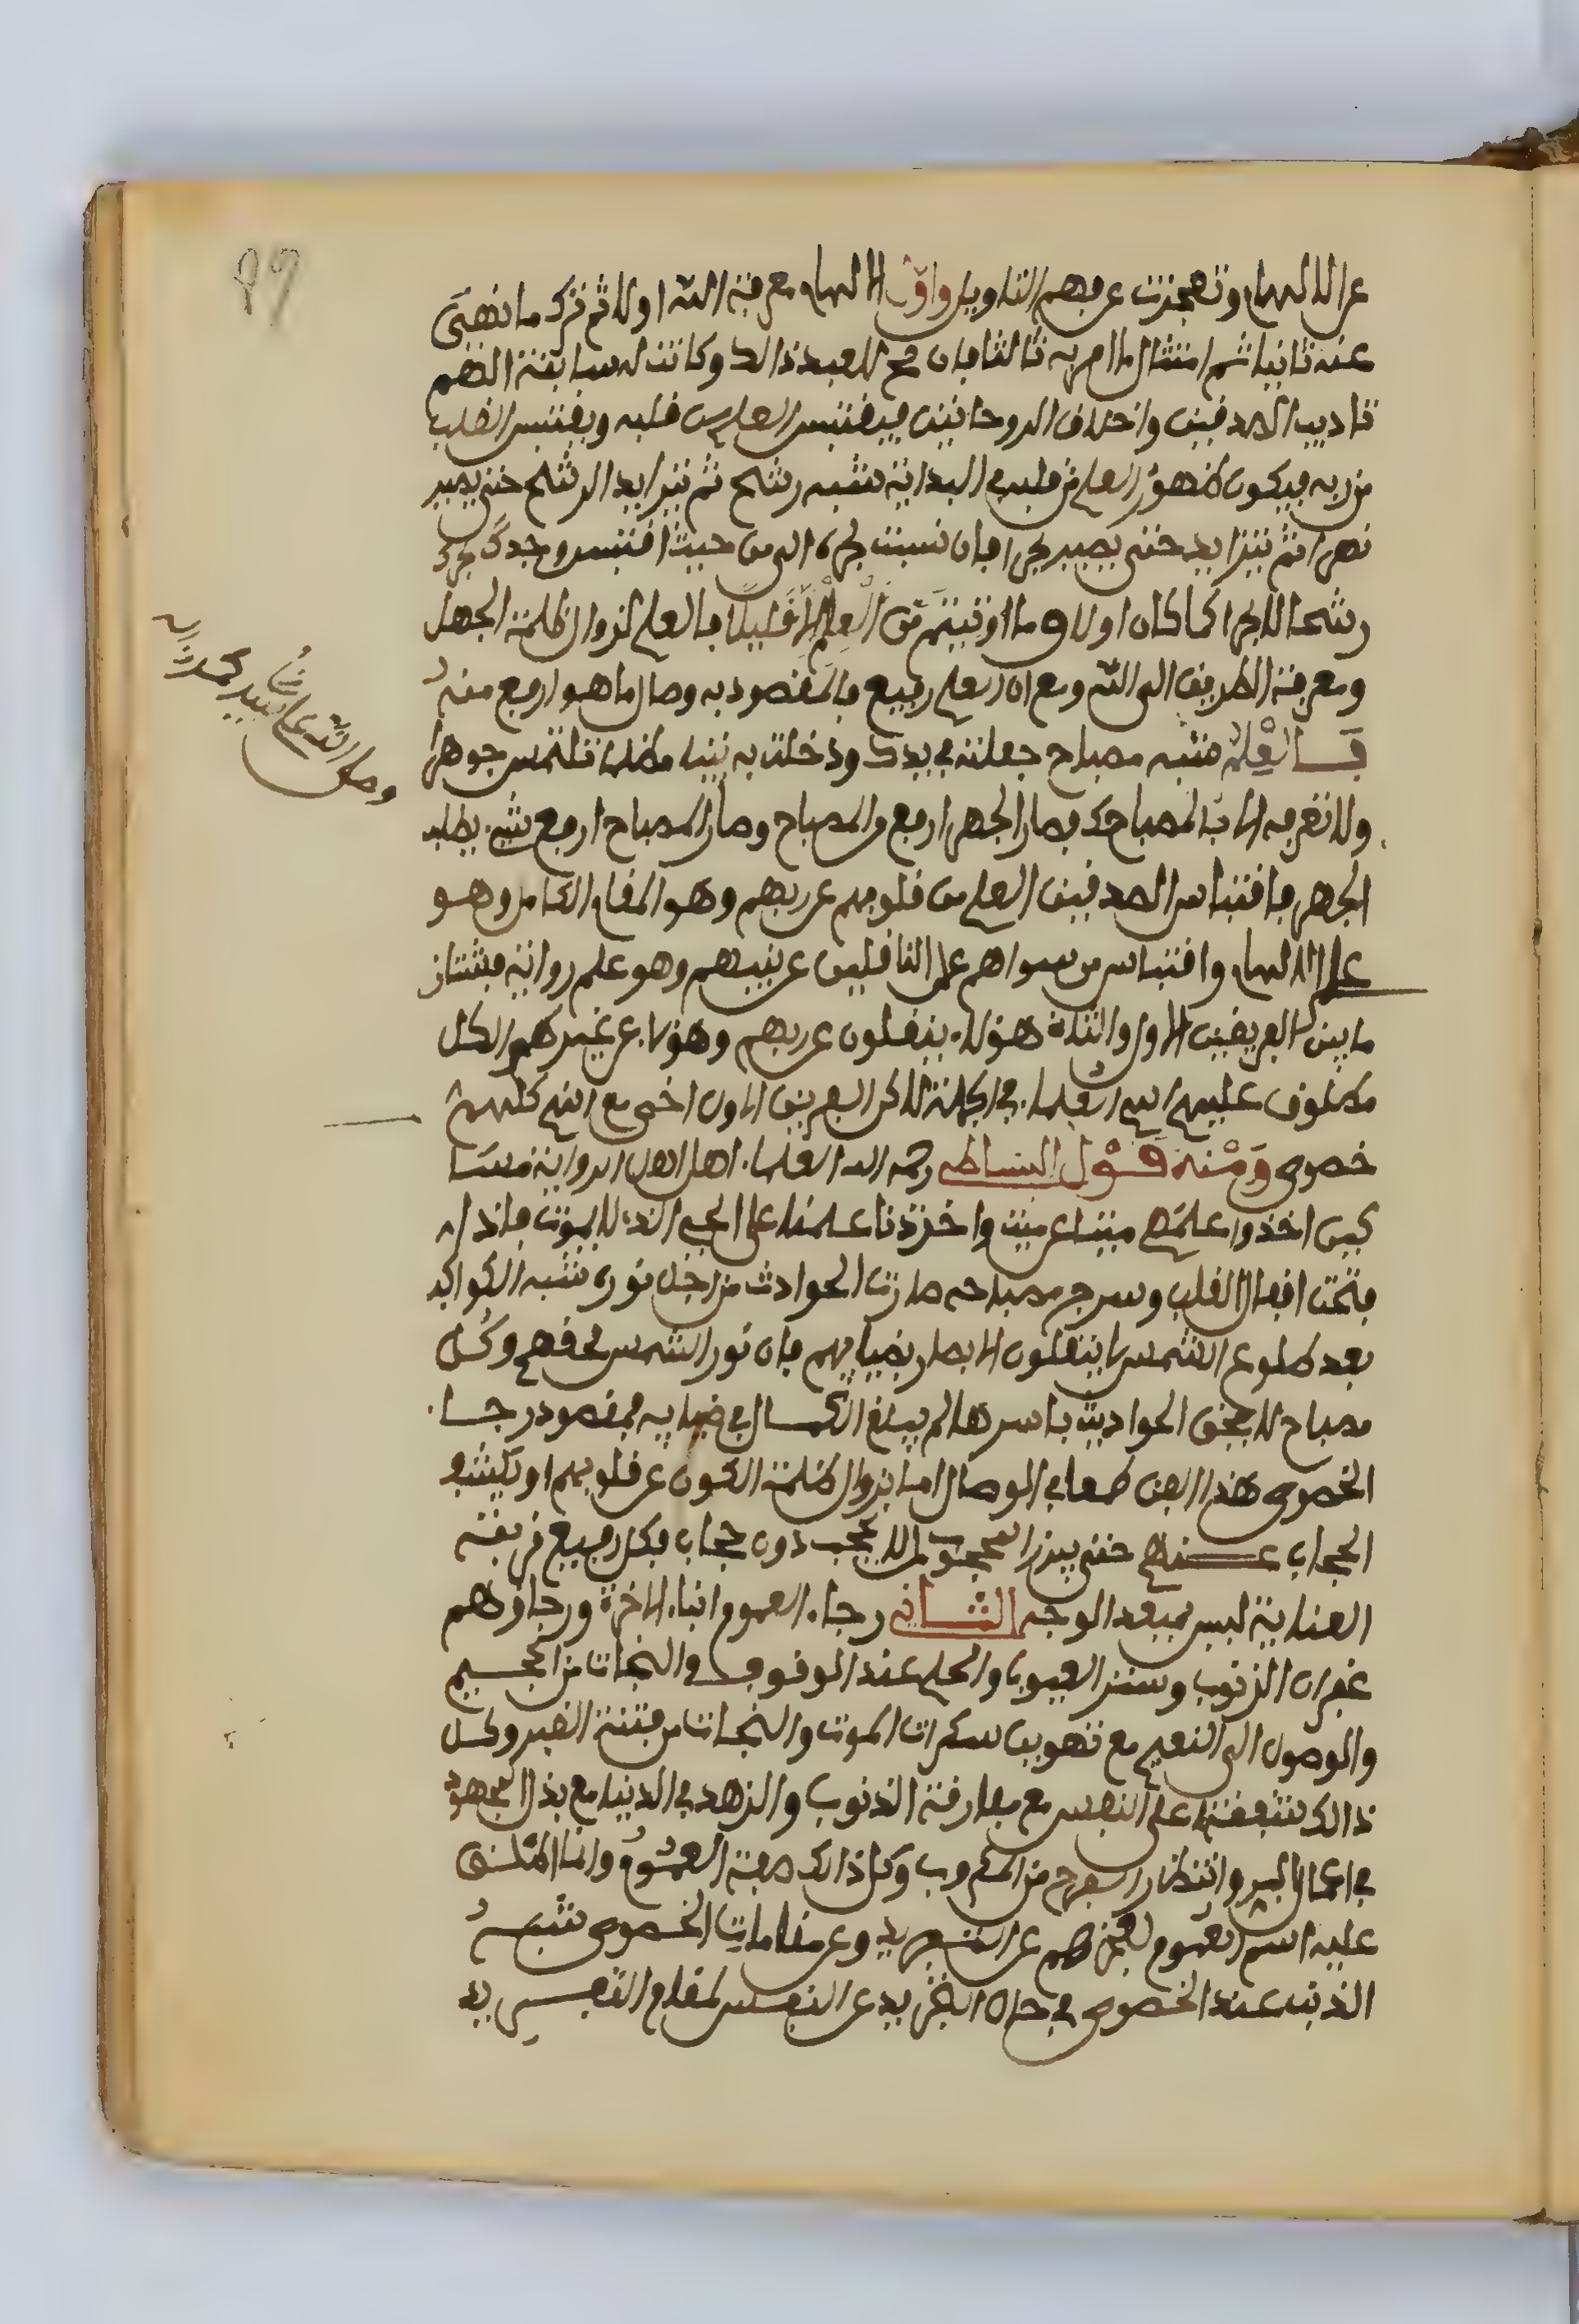 عن الالهام وتعجزت عن فهم التاويل واول الالهام معرفة الله اولا ثم ترك ما نهيت
عنه ثانيا ثم امتثال ما امر به ثالثا فان صح للعبد ذالك وكانت له سابقة الهم
تاديب الصدقين واخلاق الروحانيين فيقتبس العلم من قلبه ويقتبس القلب
من ربه فيكون ظهور العلم من قلبه في البداية شبه رشح ثم يتزايد الرشح حتى يصير
نهرا ثم يتزايد حتى يصير بحرا فان نسبت بحره الى من حيث اقتبس وجدت بحرك
رشحا لا بحرا كما كان اولا وما اوتيتم من العلم الا قليلا فالعلم لزوال ظلمة الجهل
ومعرفة الطريق الى الله ومع ان العلم رفيع فالمقصود به وصال ما هو ارفع منه
فالعلم شبه مصباح جعلته في يدك ودخلت به بيتا مظلما تلتمس جوهرا
ولا تعرفه الا بالمصباح فصار الجهر ارفع من المصباح وصار المصباح ارفع شيء يطلب
الجهر فاقتباس الصدقين العلم من قلوبهم عن ربهم وهو المقام الكامل وهو
علم الالهام واقتباس من سواهم علم الناقلين عن نبيهم وهو علم رواية فشتان
ما بين الفريقين الاول والثاني هؤلاء ينقلون عن ربهم وهؤلاء عن غيرهم الكل
مطلوق عليهم اسم العلماء في الجملة لاكن الفريق الاول اخص مع انهم كلهم
خصوص ومنه قول البسطامي رحمه الله العلماء اهل الرواية مسا
كين اخذوا علمهم ميتا عن ميت واخذنا علمنا على الحي الذي لا يموت فاذا
فتحت اقفال القلب وسرج مصباحه صارت الحوادث من اجل نوره شبه الكواكب
بعد طلوع الشمس لا ينتقلون الابصار بضيايهم فان نور الشمس محقهم وكل
مصباح لا يمحق الحواديث باسرها لم يبلغ الكمال في ضيايه فمقصود رجاء
الخصوص هذا الفن طمعا في الوصال اما بزوال ظلمة الكون عن قلوبهم او بكشف
الحجاب عنهم حتى يبرز المحجوب لما لا يحجب دون حجاب فكل رفيع من يقته
العناية ليس ببعد الوجه الثاني رجاء العموم ابناء الاخرة ورجاؤهم
غفران الذنوب وستر العيوب والحلم عند الوقوف والنجات من الجحيم
والوصول الى النعيم مع تهوين سكرات الموت والنجات من فتنة القبر وكل
ذالك شفقة على النفس مع مفارقة الذنوب والزهد في الدنيا مع بذل المجهود
في اعمال البر وانتظار الفرج من المكروب وكل ذالك صفة العموم وانما اطلق
عليه اسم العموم لعجزهم عن التفريد وعن مقامات الخصوص شبه
الذنب عند الخصوص في حال التجريد عن النفس لمقام التفريد
وصلى الله على سيدنا محمد